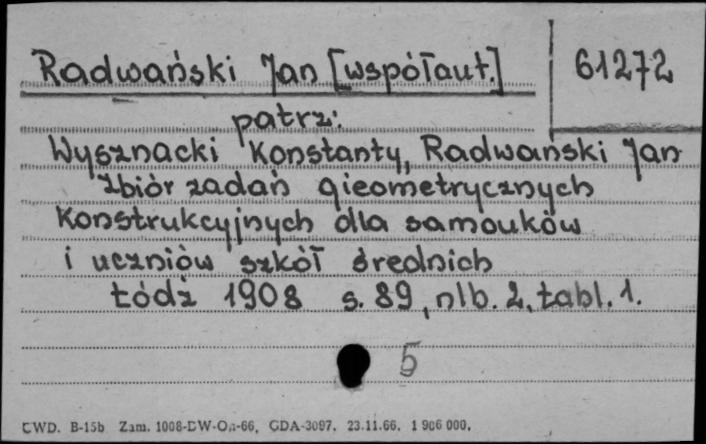 Radwański Jan [współaut.] 61272
patrz:
Wysznacki Konstanty, Radwański Jan
Zbiór zadań gieometrycznych
Konstrukcyjnych dla samouków
i uczniów szkół średnich
Łódź 1908 s. 89, nlb. 2, tabl. 1.
5
CWD. B-15b Zam. 1008-DW-On-66, GDA-3097, 23.11.66. 1 906 000.